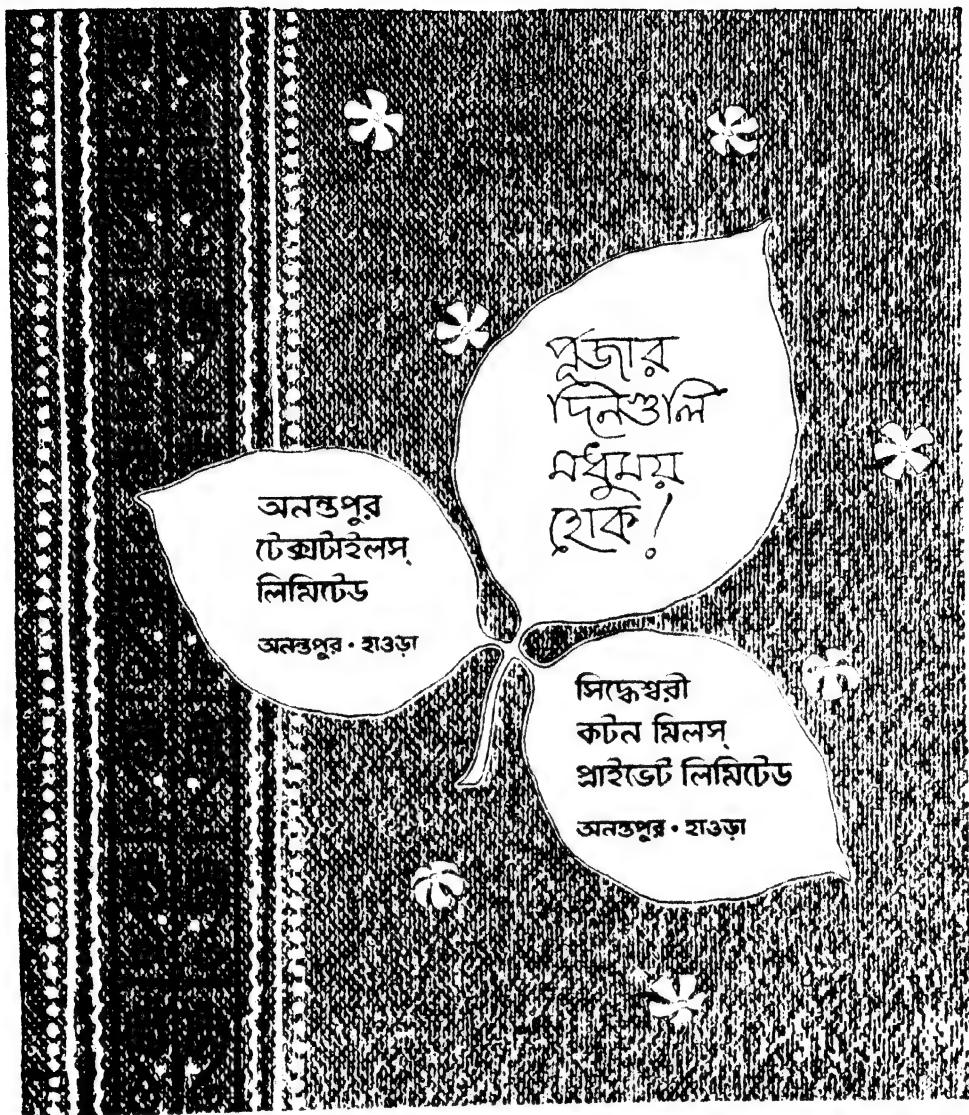 পূজার
দিনগুলি
মধুময়
হোক!
অনন্তপুর
টেক্সটাইলস্
লিমিটেড
অনন্তপুর • হাওড়া
সিদ্ধেশ্বরী
কটন মিলস্
প্রাইভেট লিমিটেড
অনন্তপুর • হাওড়া